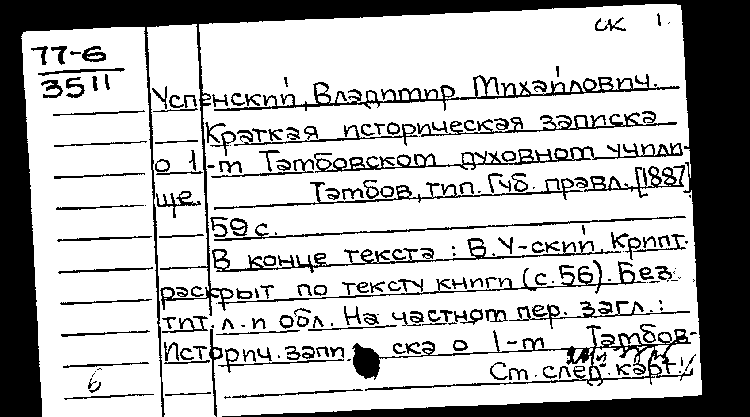 СК 1.
77-6
3511
Успенский, Владимир Михайлович.
Краткая историческая записка
о 1-м Тамбовском духовном учили-
ще. Тамбов, тип. Губ. правл., [1887]
59 с.
В конце текста: В. У-ский. Крипт.
раскрыт по тексту книги (с. 56). Без
тит. л. и обл. На частном пер. загл.:
Историч. запи ска о 1-м Тамбов-
См. след. карт.
6